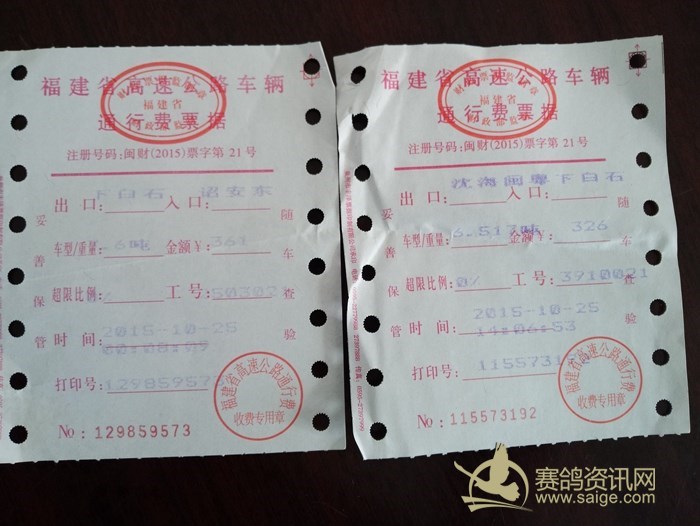 福建省高速公路车辆
财政票据监制章
福建省
财政部监制
通行费票据
注册号码:闽财(2015)票字第 21 号
下白石 诏安东
出 口: 入 口:
车型/重量: 6吨 金额¥: 361
超限比例: 工 号: 50302
时 间: 2015-10-25
00:08:09
打印号: 12985957
No: 129859573
妥善保管
随车查验
福建省高速公路通行费
收费专用章
福建省高速公路车辆
福建省
通行费票据
注册号码:闽财(2015)票字第 21 号
沈海闽粤 下白石
出 口: 入 口:
车型/重量: 6.517吨 金额¥: 326
超限比例: 0% 工 号: 3910021
时 间: 2015-10-25
14:06:53
打印号: 1155731
No: 115573192
妥善保管
随车查验
福建省高速公路通行费
收费专用章
赛鸽资讯网
www.saige.com